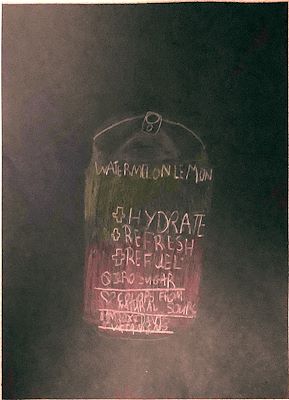 WATERMELON LEMON
+HYDRATE
+REFRESH
+REFUEL
SUGAR
♡ COLORS FROM
NATURAL SOURS